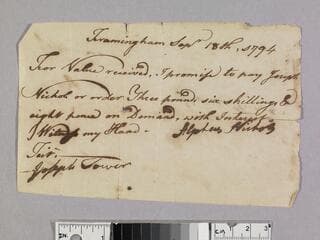 Framingham Sepr 18th, 1794
For Value received, I promise to pay Joseph
Nichol or order Three pound, six shillings &
eight pence on Demand, with Interest
my Hand - Alpheus Nichols
Test,
Joseph Tower